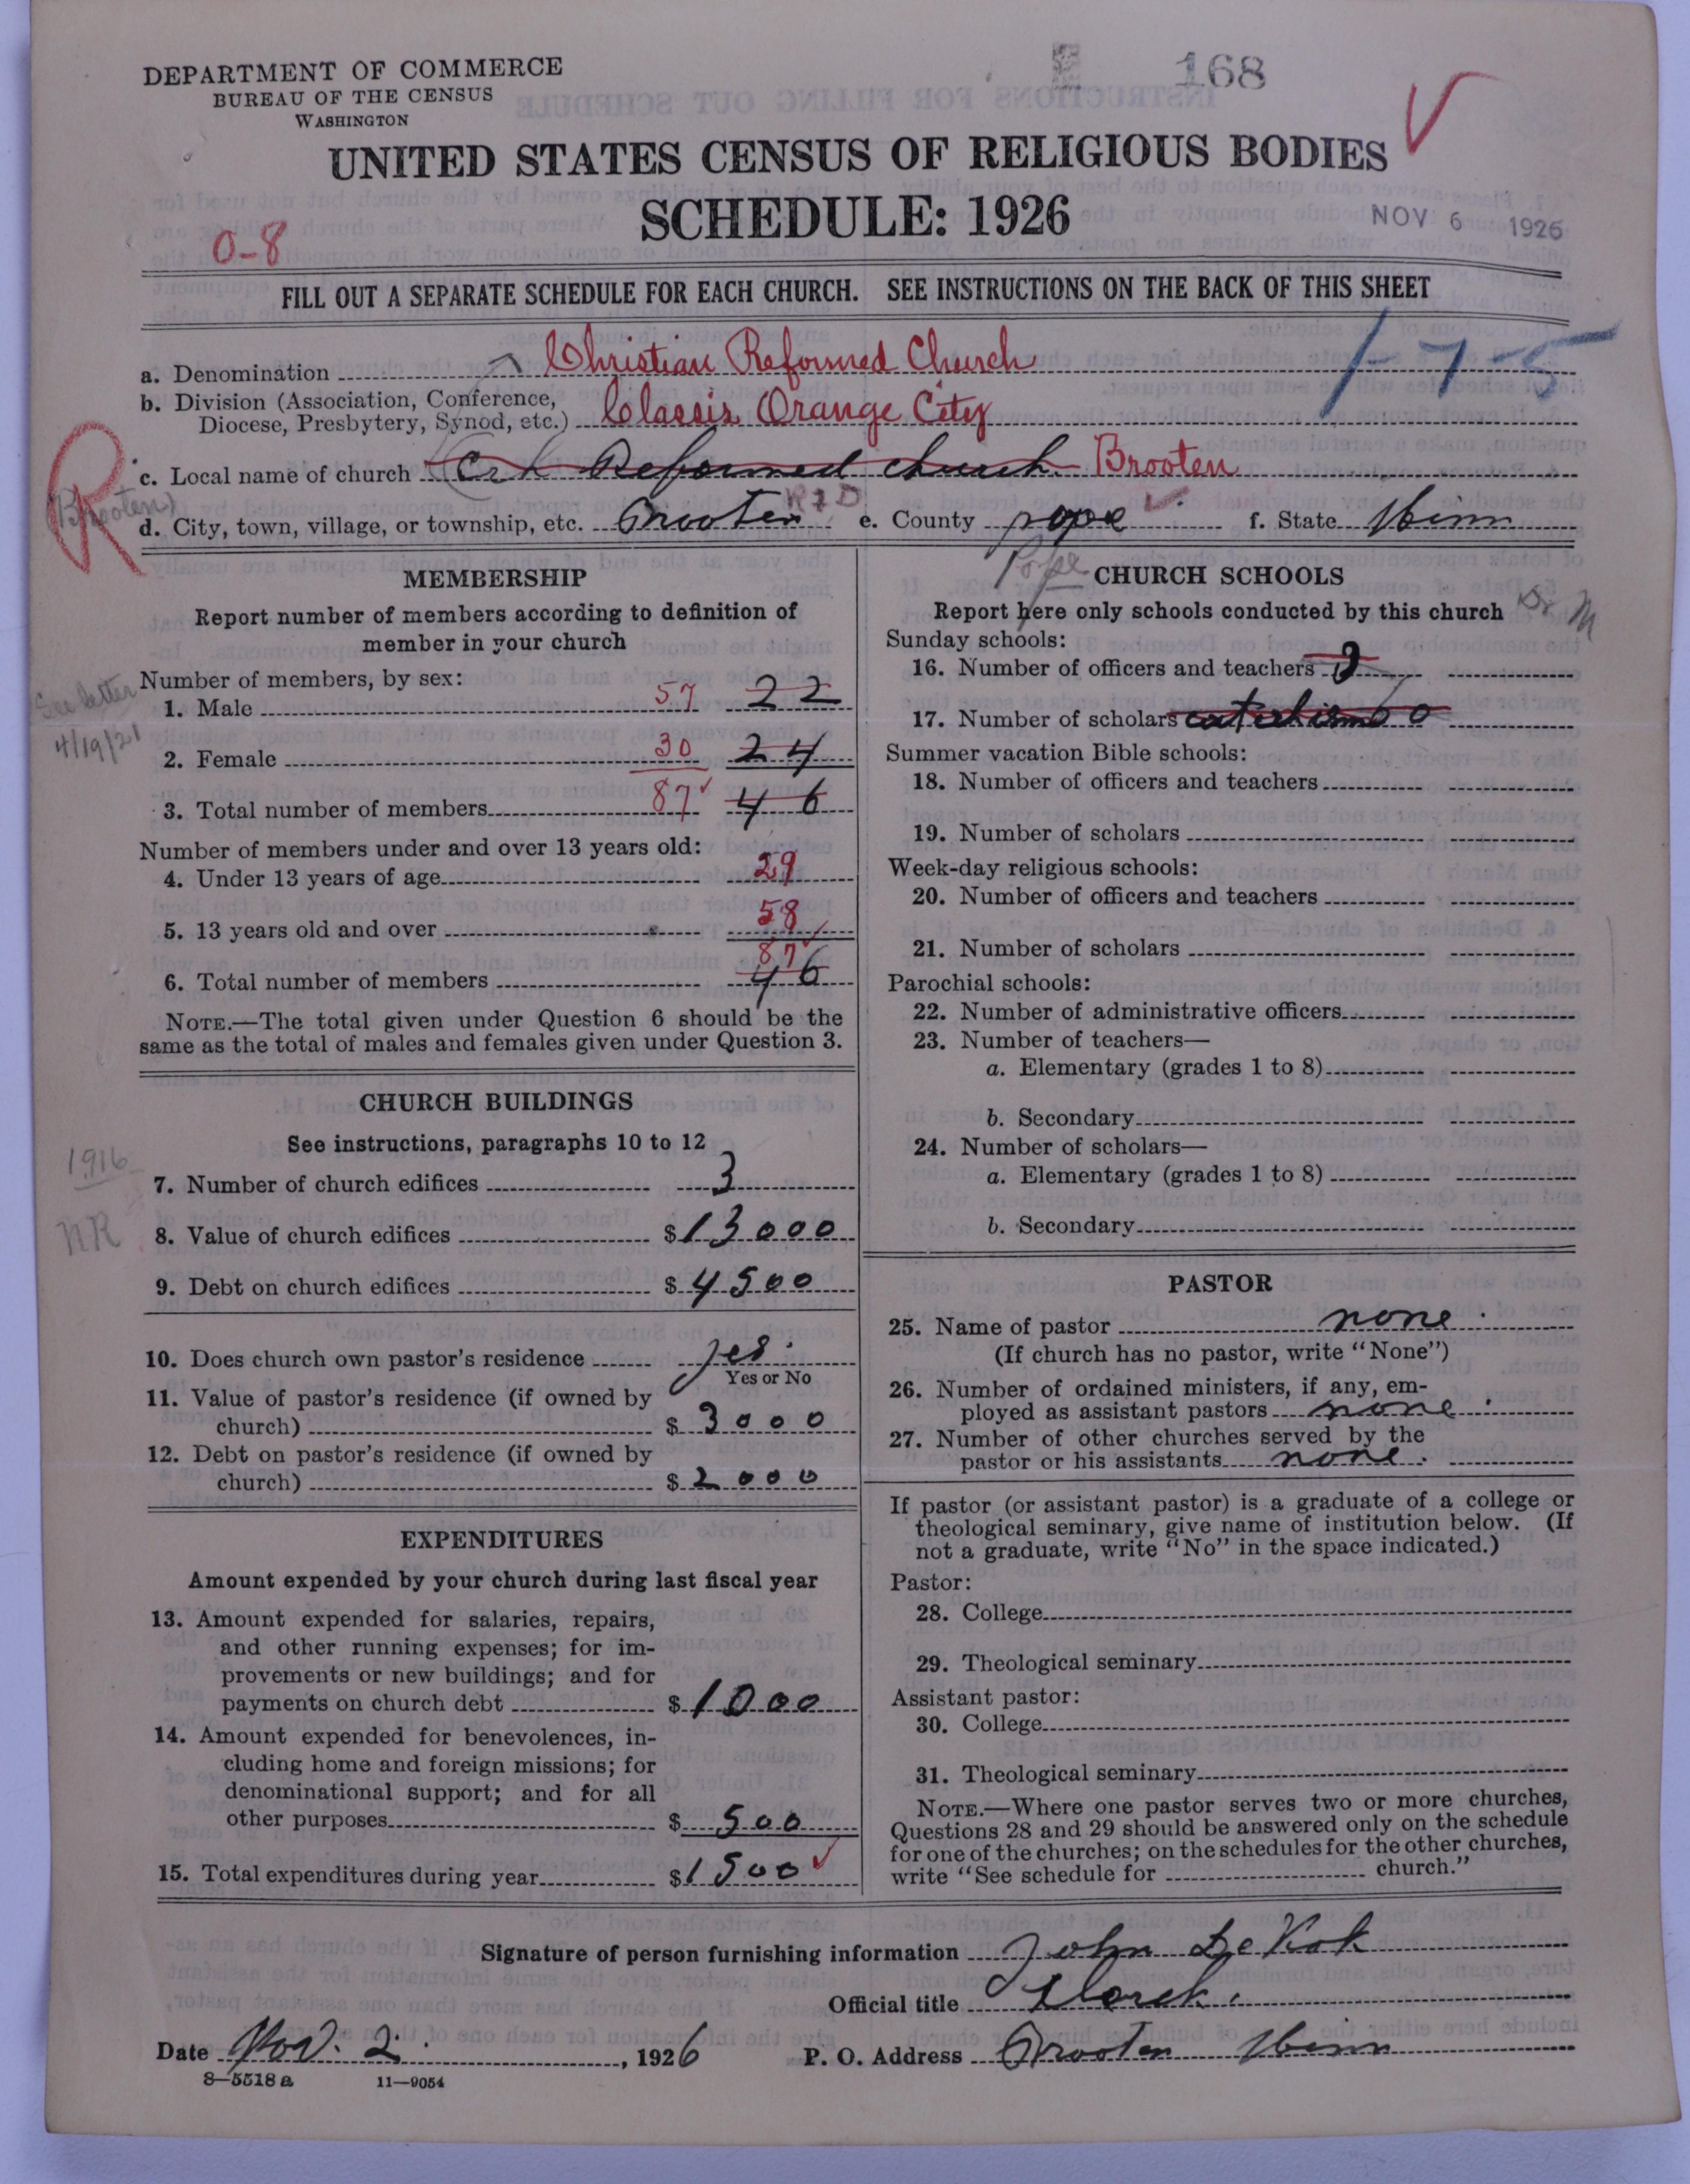 DEPARTMENT OF COMMERCE
BUREAU OF THE CENSUS
WASHINGTON
168
UNITED STATES CENSUS OF RELIGIOUS BODIES
SCHEDULE: 1926
NOV 6 1926
0-8
FILL OUT A SEPARATE SCHEDULE FOR EACH CHURCH. SEE INSTRUCTIONS ON THE BACK OF THIS SHEET
1-7-5
a. Denomination Christian Reformed Church
b. Division (Association, Conference,
Diocese, Presbytery, Synod, etc.) Classis Orange City
R
c. Local name of church Reformed church Brooten
(Brooten)
d. City, town, village, or township, etc. Brooten RFD e. County pope f. State Minn
Pope
MEMBERSHIP
Report number of members according to definition of
member in your church
See letter
4/19/21
Number of members, by sex:
1. Male 57 22
2. Female 30 24
3. Total number of members 87 46
Number of members under and over 13 years old:
4. Under 13 years of age 29
5. 13 years old and over 58
87
6. Total number of members 46
NOTE.—The total given under Question 6 should be the
same as the total of males and females given under Question 3.
CHURCH BUILDINGS
See instructions, paragraphs 10 to 12
1916
NR
7. Number of church edifices 3
8. Value of church edifices $13000
9. Debt on church edifices $4500
10. Does church own pastor's residence yes
Yes or No
11. Value of pastor's residence (if owned by
church) $3000
12. Debt on pastor's residence (if owned by
church) $2000
EXPENDITURES
Amount expended by your church during last fiscal year
13. Amount expended for salaries, repairs,
and other running expenses; for im-
provements or new buildings; and for
payments on church debt $1000
14. Amount expended for benevolences, in-
cluding home and foreign missions; for
denominational support; and for all
other purposes $500
15. Total expenditures during year $1500
CHURCH SCHOOLS
Report here only schools conducted by this church
Sunday schools:
16. Number of officers and teachers
17. Number of scholars catechismo 0
Summer vacation Bible schools:
18. Number of officers and teachers
19. Number of scholars
Week-day religious schools:
20. Number of officers and teachers
21. Number of scholars
Parochial schools:
22. Number of administrative officers
23. Number of teachers—
a. Elementary (grades 1 to 8)
b. Secondary
24. Number of scholars—
a. Elementary (grades 1 to 8)
b. Secondary
PASTOR
25. Name of pastor none
(If church has no pastor, write "None")
26. Number of ordained ministers, if any, em-
ployed as assistant pastors none
27. Number of other churches served by the
pastor or his assistants none
If pastor (or assistant pastor) is a graduate of a college or
theological seminary, give name of institution below. (If
not a graduate, write "No" in the space indicated.)
Pastor:
28. College
29. Theological seminary
Assistant pastor:
30. College
31. Theological seminary
NOTE.—Where one pastor serves two or more churches,
Questions 28 and 29 should be answered only on the schedule
for one of the churches; on the schedules for the other churches,
write "See schedule for church."
Signature of person furnishing information John De Kok
Official title Clerck.
Date Nov. 2. , 1926 P. O. Address Brooten Minn
8—5518 a 11—9054